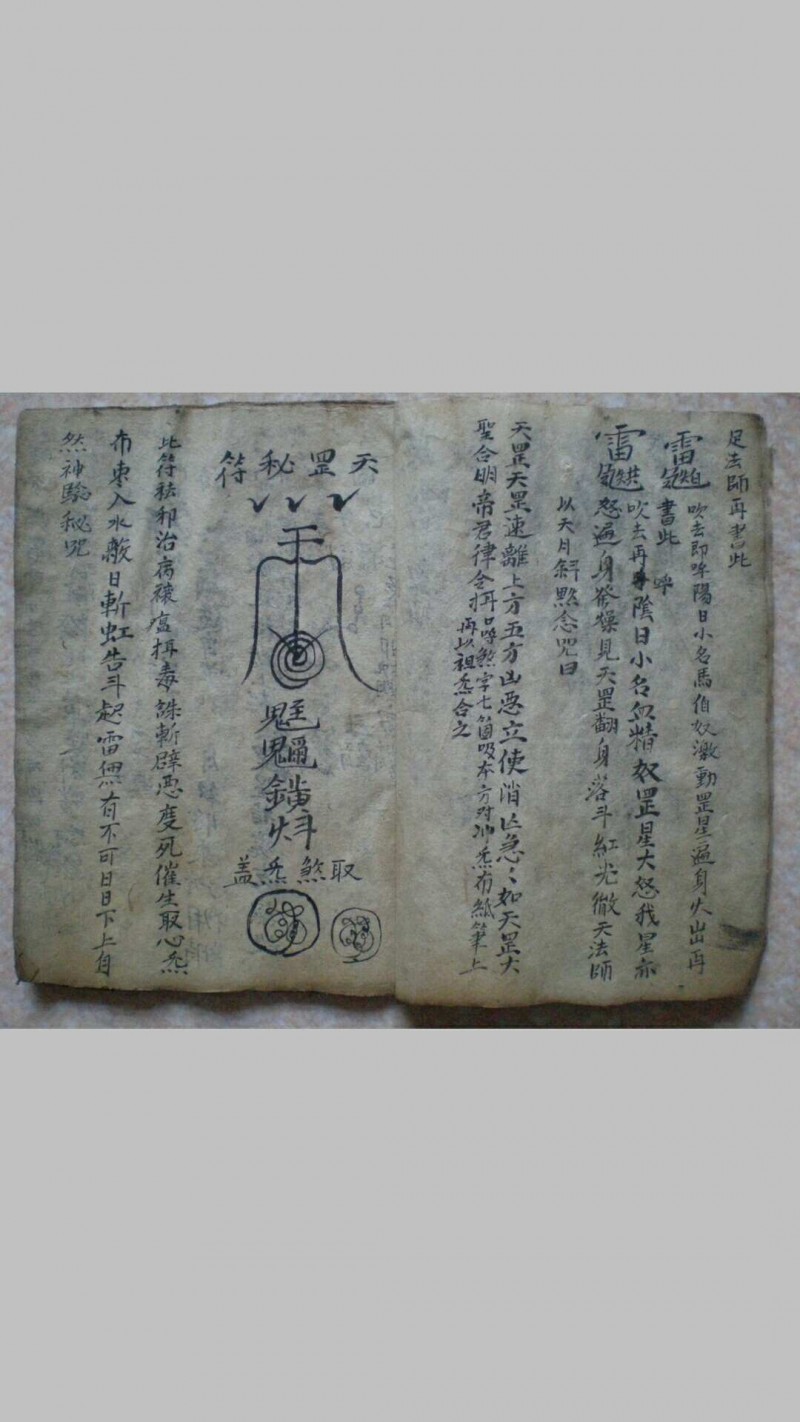 足法師再書此
吹去即呼陽日小名馬伯奴激動罡星遍身火出再
書此
吹去再呼陰日小名血精奴罡星大怒我星亦
怒遍身發燥見天罡翻身落斗紅光徹天法師
以天月斜點念咒曰
天罡天罡速離上方五方凶惡立使消亡急〻如天罡大
聖合明帝君律令
煞字七箇吸本方对冲炁布紙筆上
再以祖炁合之
天罡秘符
取煞炁盖
此符祛邪治病禳瘟揖毒誅斬辟憑度死催生取心炁
布東入水般日斬虹告斗起雷無有不可日日下上自
然神驗秘咒